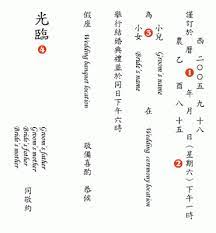 西 二〇〇五 九 十
謹訂於 曆 1 年 月 日（星期六）下午一時
農 乙 八 十五
2
為 小兒 Groom's name 在 Wedding ceremony location
5
小女 Bride's name
舉行結婚典禮並於同日下午六時
假座 Wedding banquet location 敬備喜酌 恭候
光臨 4
Groom's father
Groom's mother
Bride's father
Bride's mother
同敬約